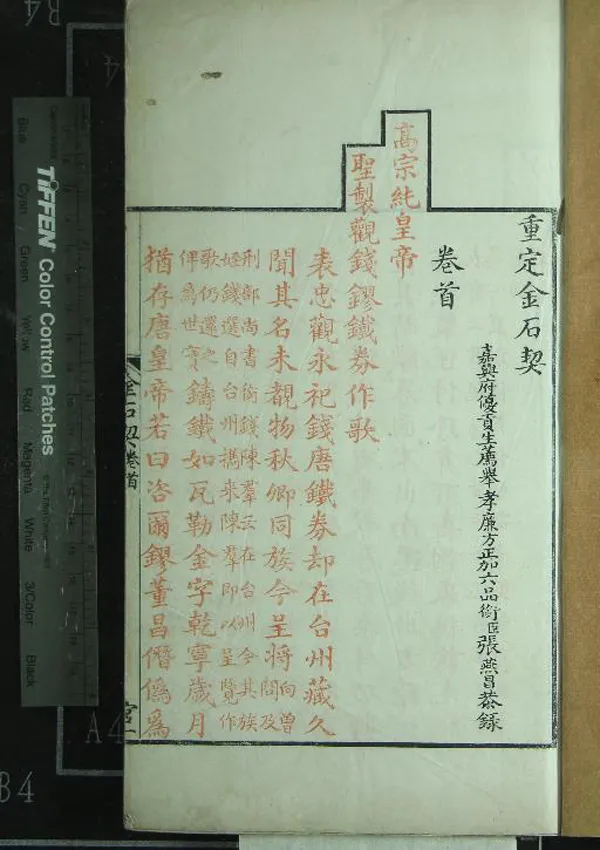 重定金石契
嘉興府優貢生薦舉孝廉方正加六品銜臣張燕昌恭錄
卷首
高宗純皇帝
聖製觀錢鏐鐵券作歌
表忠觀永祀錢唐鐵券却在台州藏久
聞其名未覩物秋卿同族今呈將向曾問及
刑部尚書銜錢陳羣云在台州今其族
姪錢選自台州攜來陳羣即以呈覽作
歌仍還之俾為世寶鑄鐵如瓦勒金字乾寧歲月
猶存唐皇帝若曰咨爾鏐董昌僭僞爲
金石契卷首
宮一
TIFFEN Color Control Patches
Blue
Cyan
Green
Yellow
Red
Magenta
White
3/Color
Black
B4
A4
B4